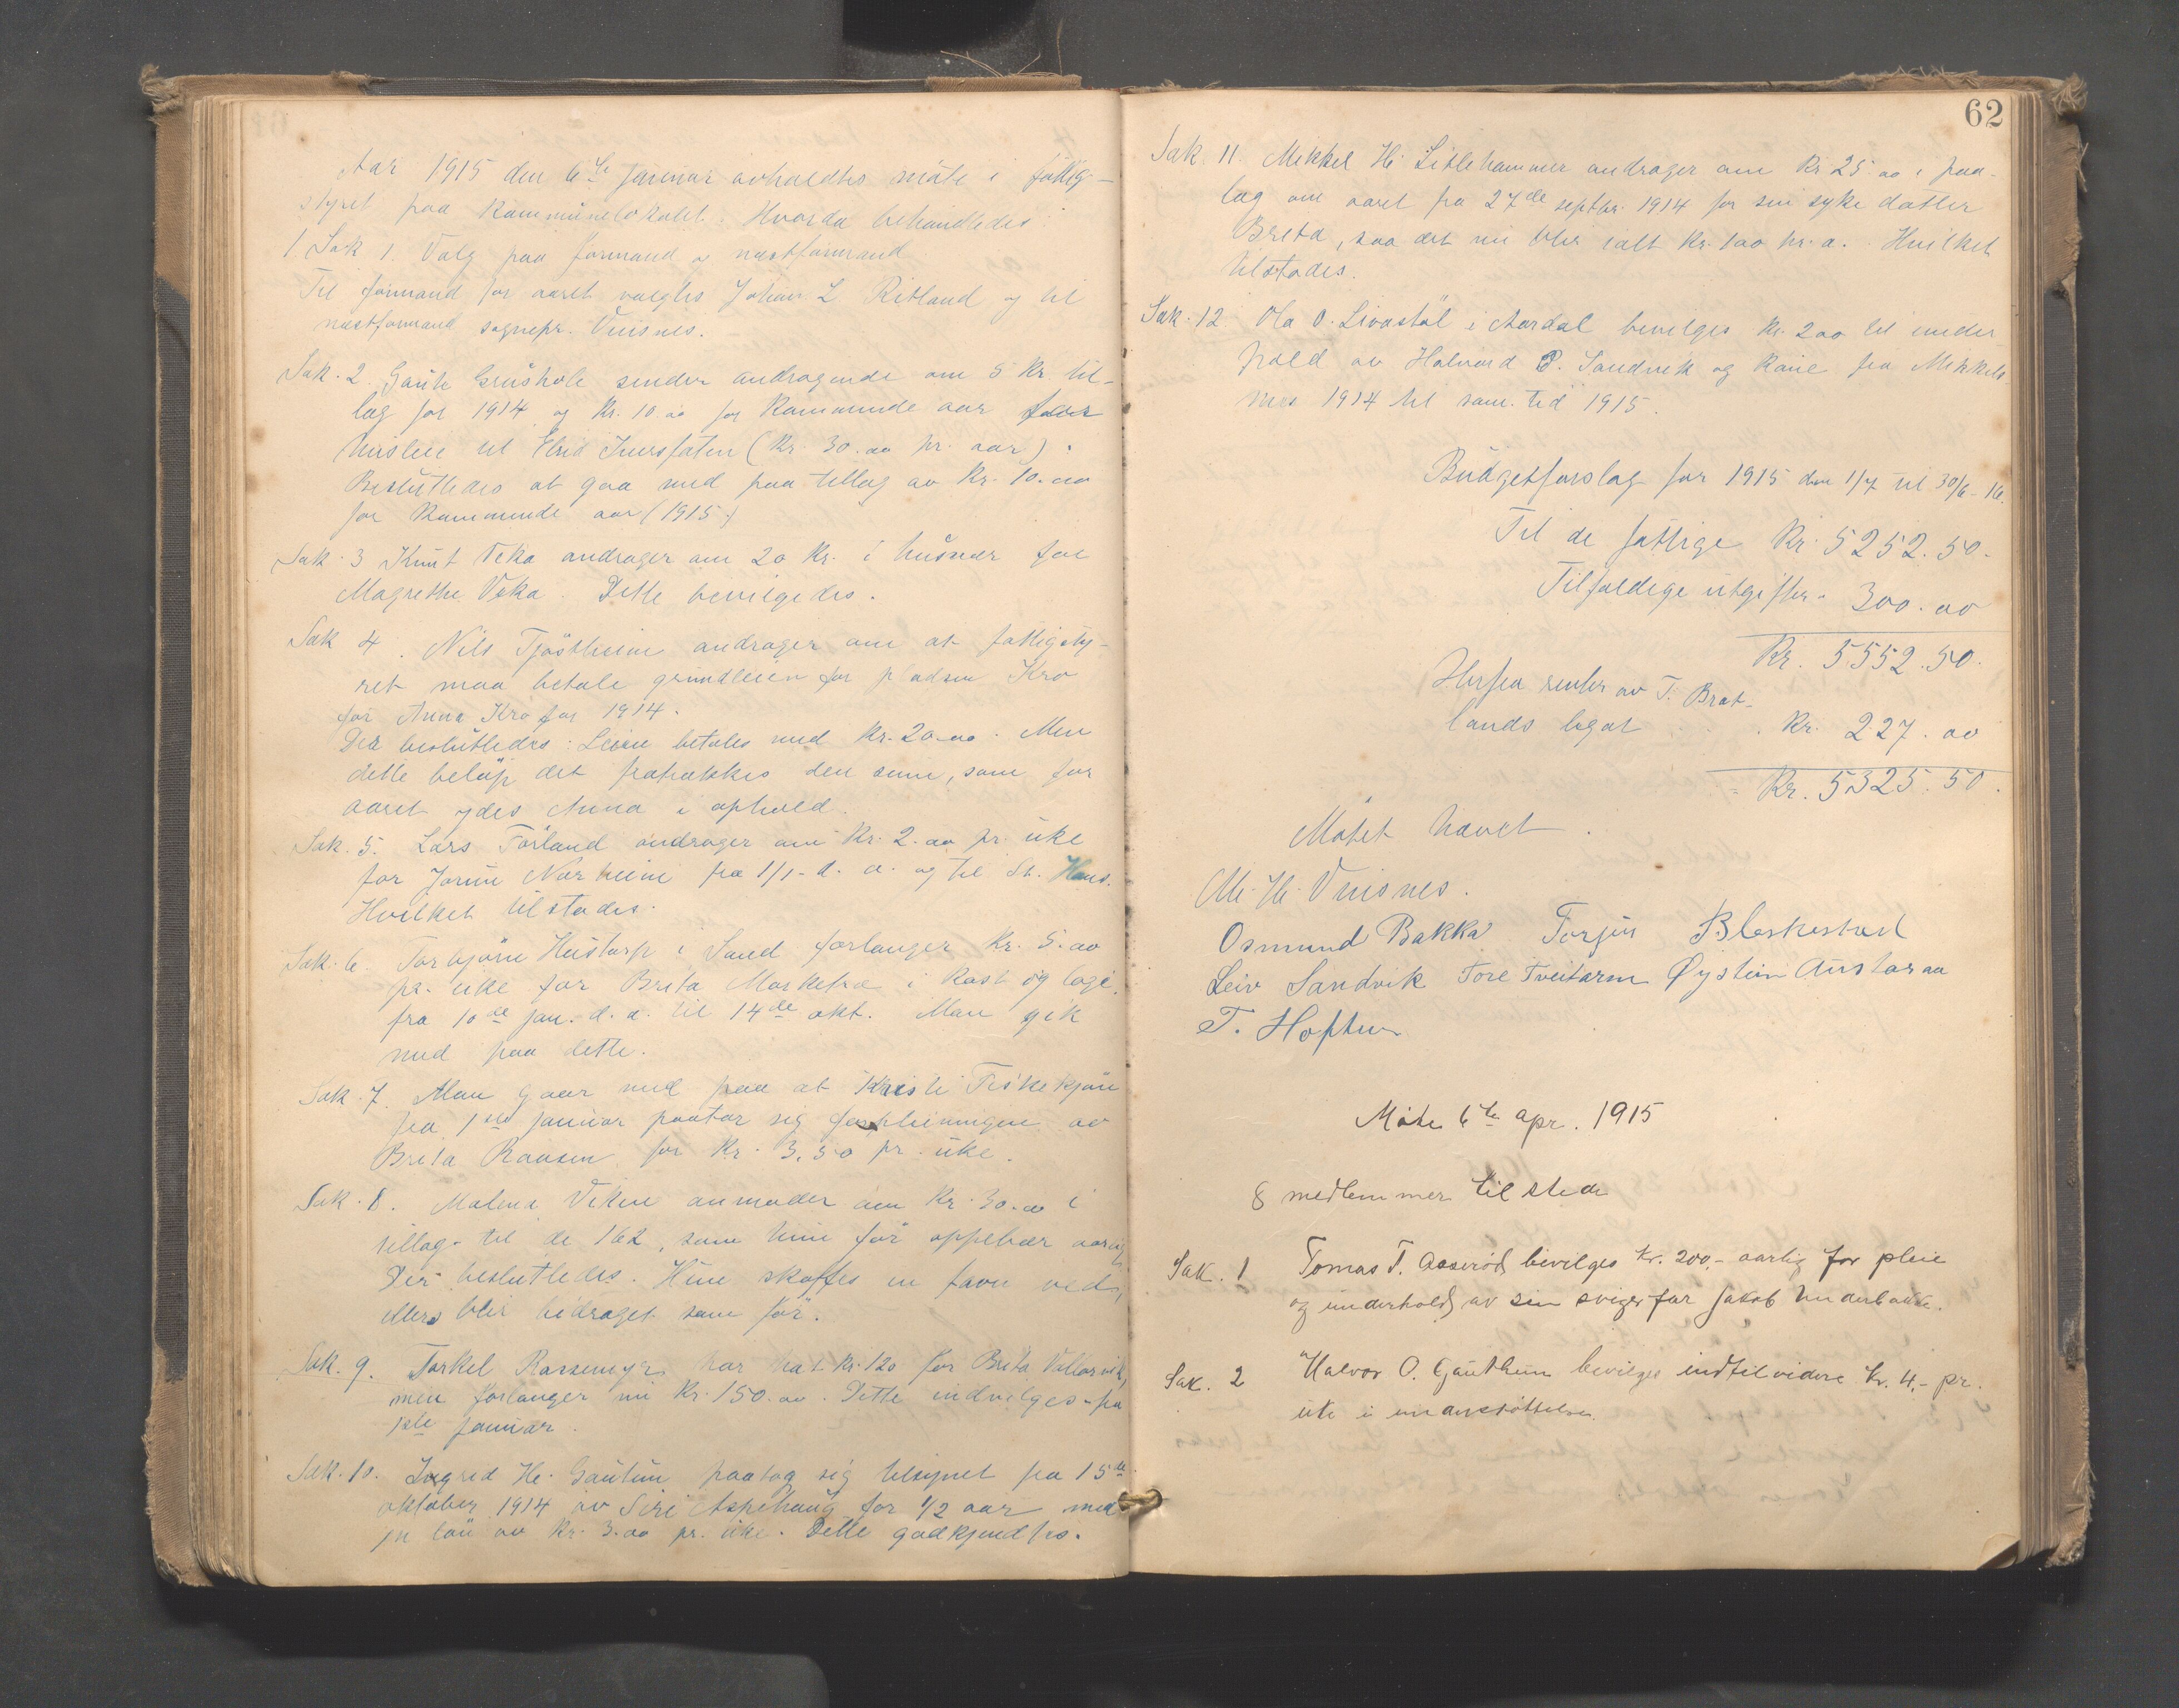 Aar 1915 den 6te januar avholdtes möte i fattig-
styret paa kommunelokalet. Hvorda behandledes:
Sak 1. Valg paa formand og næstformand
Til formand for aaret valgtes Johan L Ritland og til
næstformand sognepr. Vuisnes.
Sak. 2. Gaute Grushole sender andragende om 5 kr til-
læg for 1914 og kr. 10.00 for kommende aar
husleie til (kr. 30.00 pr. aar).
Besluttedes at gaa med paa tillæg av kr. 10.00
for kommende aar (1915.)
Sak. 3 Knut Veka andrager om 20 kr. i husvær for
Magrethe Veka. Dette bevilgedes.
Sak 4. Nils Tjöstheim andrager om at fattigsty-
ret maa betale grundleien for pladsen Kro
for Anna Kro for 1914.
Der besluttedes: Leien betales med kr. 20.00. Men
dette belöp det fratrækkes den sum, som for
aaret ydes Anna i ophold.
Sak. 5. Lars Förland andrager om kr. 2.00 pr. uke
for Norheim fra 1/1 d. a. og til St. Hans.
Hvilket tilstodes.
Sak. 6. Torbjörn Heistarp i Sand forlanger kr. 5.00
pr. uke for Brita i kost og logi.
fra 10de jan. d. a. til 14de okt. Man gik
med paa dette.
Sak. 7. Man gaar med paa at Kristi Fiskekjön
fra 1ste januar paatar sig forpleiningen av
Brita Roaasen for kr. 3,50 pr. uke.
Sak. 8. Malena Veken anmoder om kr. 30.00 i
tillæg til de 162, som hun för oppebær aarlig
Der besluttedes. Hun skaffes en favn ved,
ellers blir bidraget som för.
Sak. 9. Torkel Rossemyr har hat kr. 120 for Brita
men forlanger nu kr. 150.00. Dette indvilges fra
1ste januar.
Sak. 10. Ingrid H. Gautun paatog sig tilsynet fra 15de
oktober 1914 av Siri Aspehaug for 1/2 aar med
en lön av kr. 3.00 pr. uke. Dette godkjendtes.
62
Sak. 11. Mikkel H. Litlehammer andrager om kr 25.00 i paa-
læg om aaret fra 27de septbr. 1914 for sin syke datter
Breta, saa det nu blir ialt kr. 100 pr. a. Hvilket
tilstodes.
Sak. 12 Ola O. Livastöl i Aardal bevilges kr. 200 til under
hold av Halvard P. Sandvik og kone fra Mikkels
mes 1914 til sam. tid 1915.
Budgetforslag for 1915 den 1/7 til 30/6-16.
Til de fattige kr. 5252.50.
Tilfældige utgifter - 300.00
kr. 5552.50.
Herfra renter av T. Brat-
lands legat . . . kr. 227.00
= kr. 5325.50.
Mötet hævet.
M. H. Vuisnes.
Osmund Bakka Torjus Bleskestad
Leiv Sandvik Tore Tveitarm Øystein Austaraa
T. Hoftun
Möte 6te apr. 1915
8 medlemmer tilstede
Sak. 1 Tomas T. Aaserød bevilges kr. 200,- aarlig for pleie
og underhold av sin svigerfar Jakob Underbakke.
Sak. 2 Halvor O. Gauthun bevilges indtil videre kr. 4,- pr.
uke i